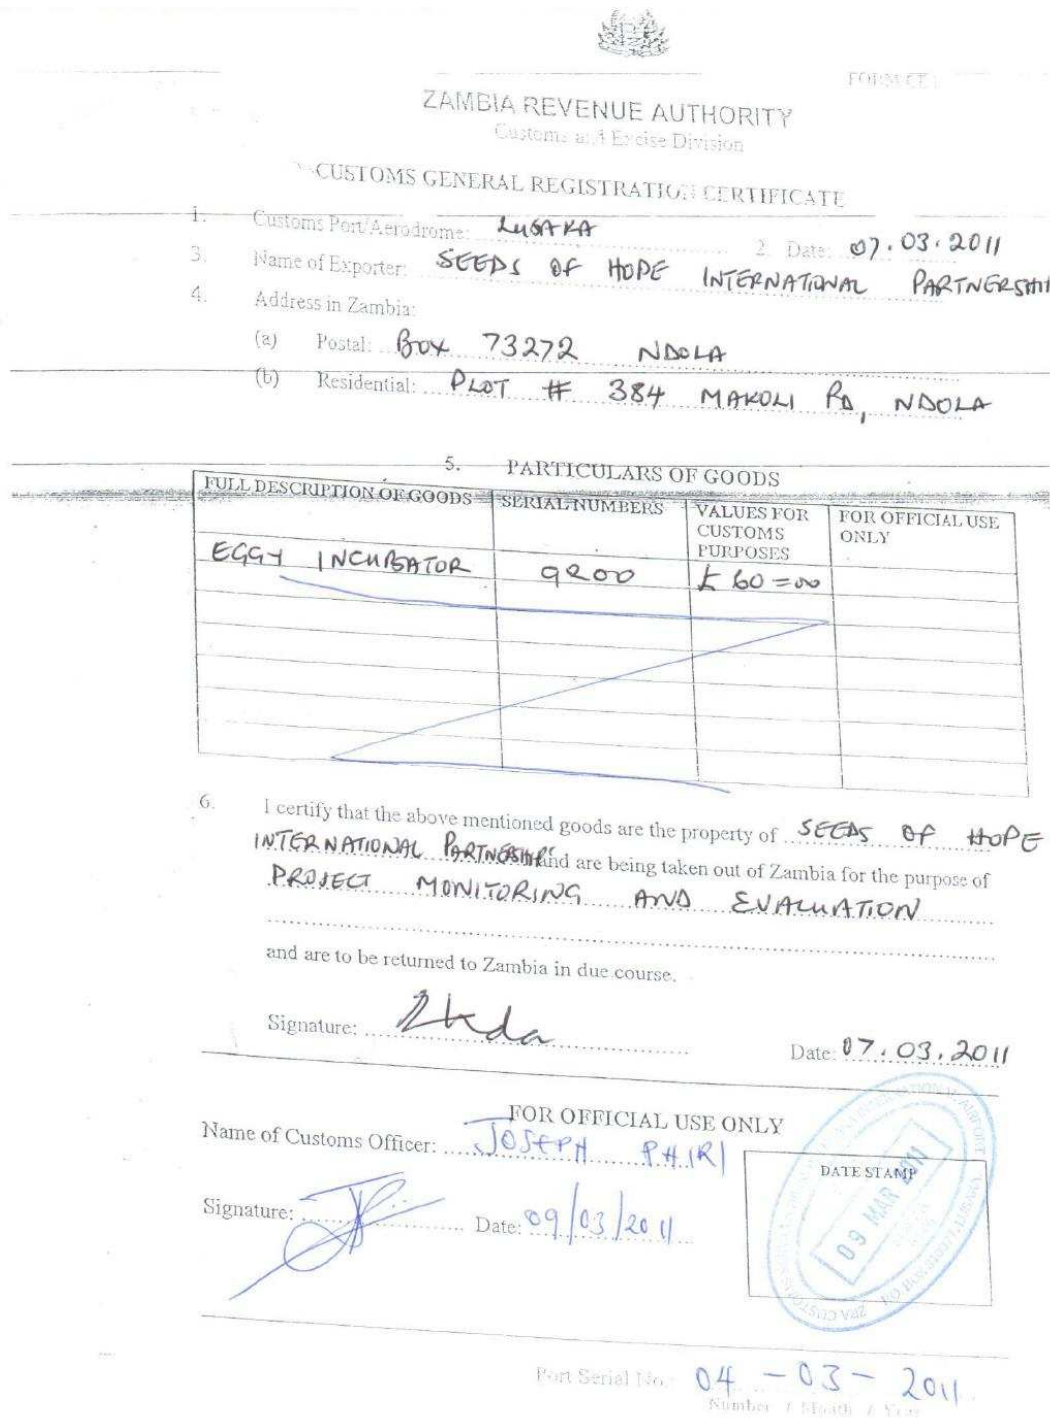 FORM CE
ZAMBIA REVENUE AUTHORITY
Customs and Excise Division
CUSTOMS GENERAL REGISTRATION CERTIFICATE
1. Customs Port/Aerodrome: LUSAKA 2. Date: 07.03.2011
3. Name of Exporter: SEEDS OF HOPE INTERNATIONAL PARTNERSHI
4. Address in Zambia:
(a) Postal: Box 73272 NDOLA
(b) Residential: PLOT # 384 MAKOLI RD, NDOLA
5. PARTICULARS OF GOODS
FULL DESCRIPTION OF GOODS SERIAL NUMBERS VALUES FOR CUSTOMS PURPOSES FOR OFFICIAL USE ONLY
EGGY INCUBATOR 9200 £ 60=00
6. I certify that the above mentioned goods are the property of SEEDS OF HOPE
INTERNATIONAL PARTNERSHIP and are being taken out of Zambia for the purpose of
PROJECT MONITORING AND EVALUATION
and are to be returned to Zambia in due course.
Signature: Date: 07.03.2011
FOR OFFICIAL USE ONLY
Name of Customs Officer: JOSEPH PHIRI
DATE STAMP
09 MAR 2011
Signature: Date: 09/03/2011
Port Serial No: 04 - 03 - 2011
Number / Month / Year